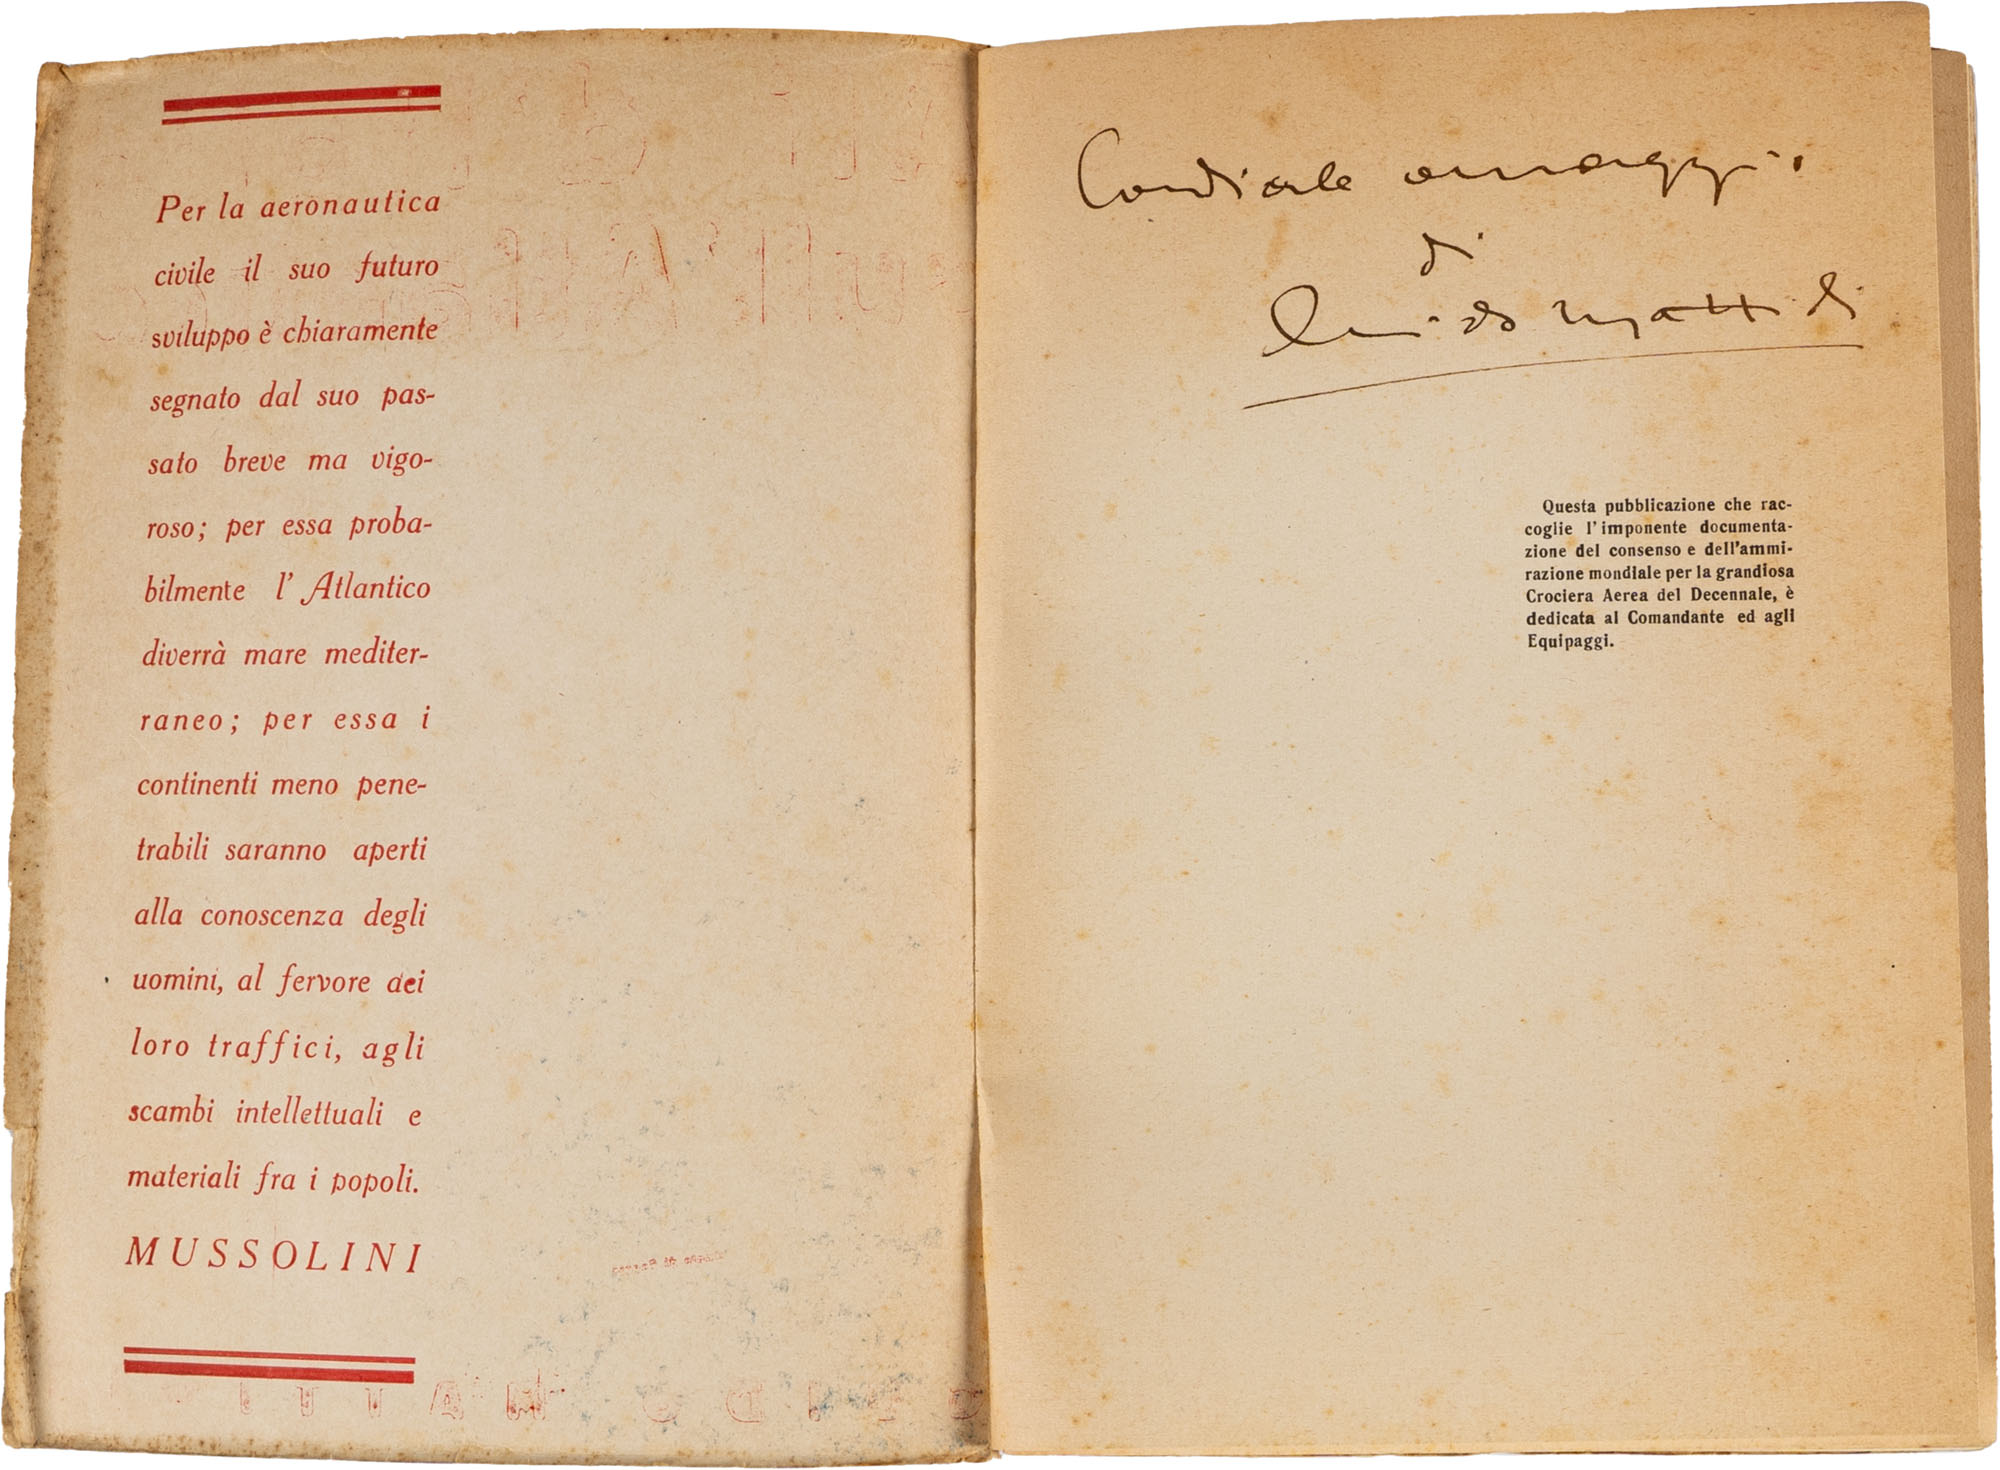 Per la aeronautica
civile il suo futuro
sviluppo è chiaramente
segnato dal suo pas-
sato breve ma vigo-
roso; per essa proba-
bilmente l' Atlantico
diverrà mare mediter-
raneo; per essa i
continenti meno pene-
trabili saranno aperti
alla conoscenza degli
uomini, al fervore dei
loro traffici, agli
scambi intellettuali e
materiali fra i popoli.
MUSSOLINI
Cordiale omaggio
di
Guido Mattioli
Questa pubblicazione che rac-
coglie l'imponente documenta-
zione del consenso e dell'ammi-
razione mondiale per la grandiosa
Crociera Aerea del Decennale, è
dedicata al Comandante ed agli
Equipaggi.